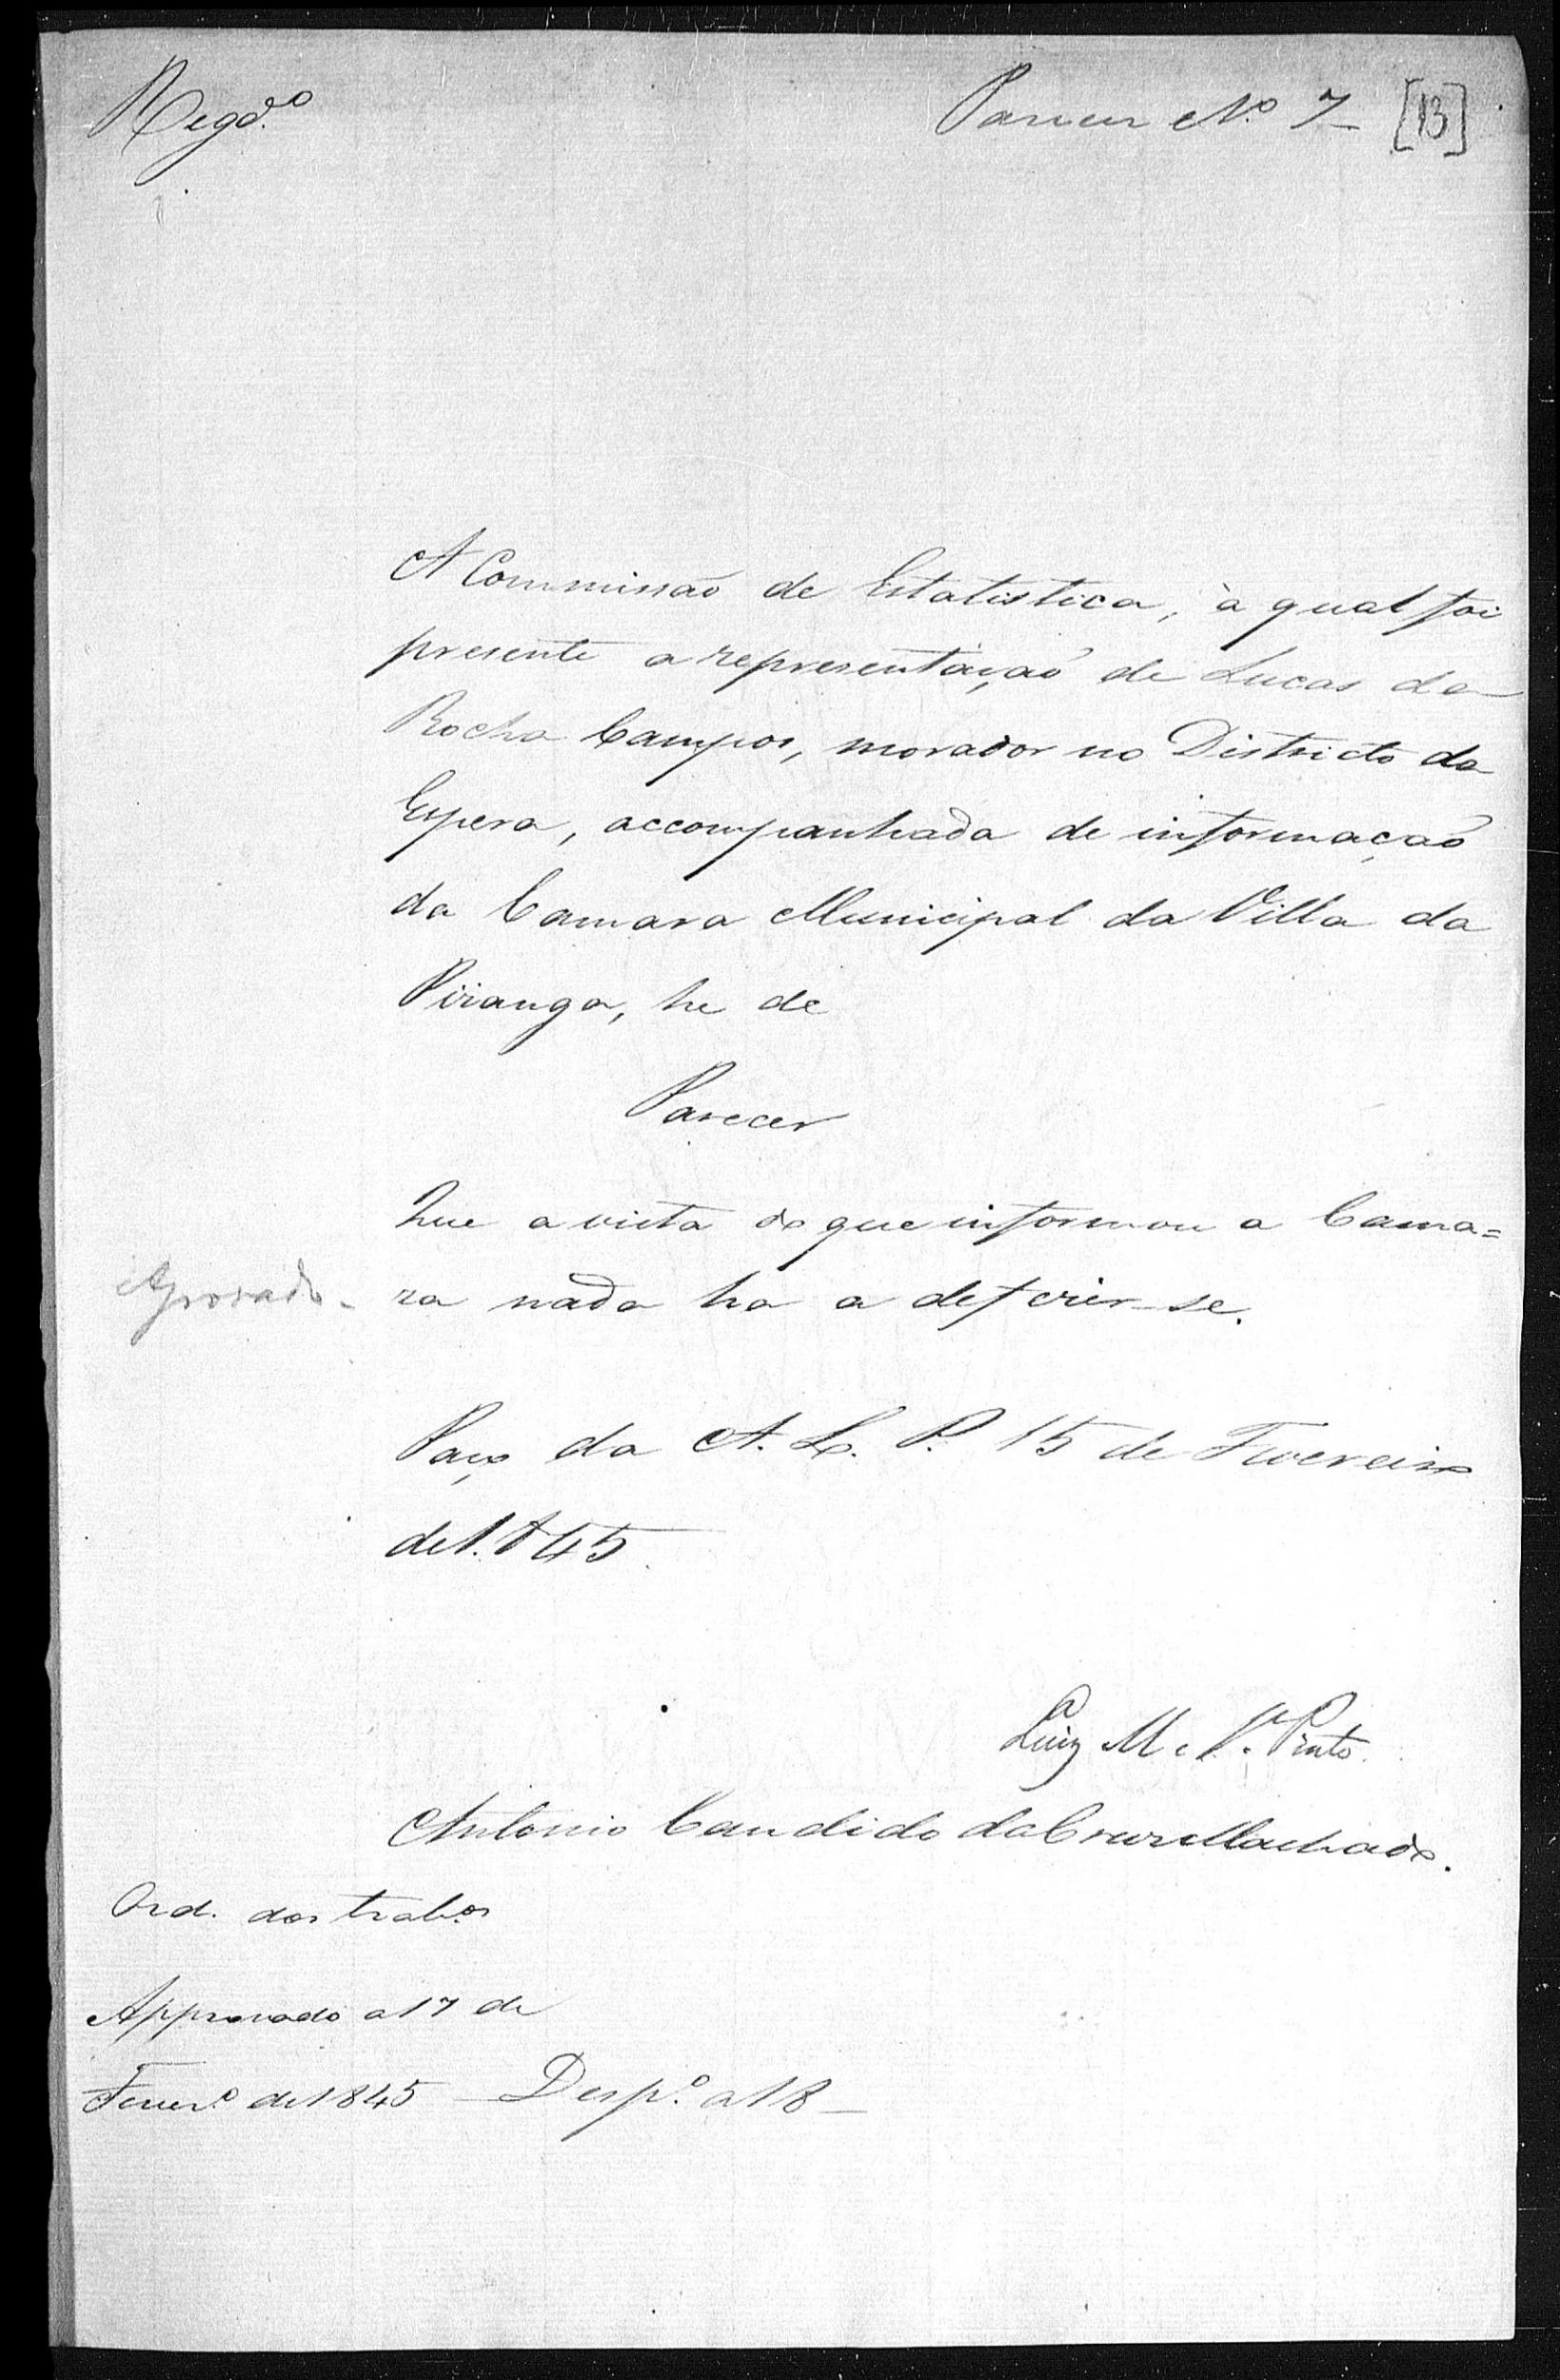 Regd.º
Parecer N.º 7 [13]
A Commissaõ de Estatistica, à qual foi
presente a representaçaõ de Lucas da
Rocha Campos, morador no Districto da
Espera, accompanhada de informaçaõ
da Camara Municipal da Villa da
Piranga, he de
Parecer
Que a vista do que informou a Cama=
Aprovado. ra nada ha a deferir-se.
Paço da A. L. P. 15 de Fevereiro
de 1.845.
Luiz M. Pinto.
Antonio Candido da Cruz Machado.
Ord. dos trab.os
Approvado a 17 de
Fever.º de 1845 - Desp.º a 18 -